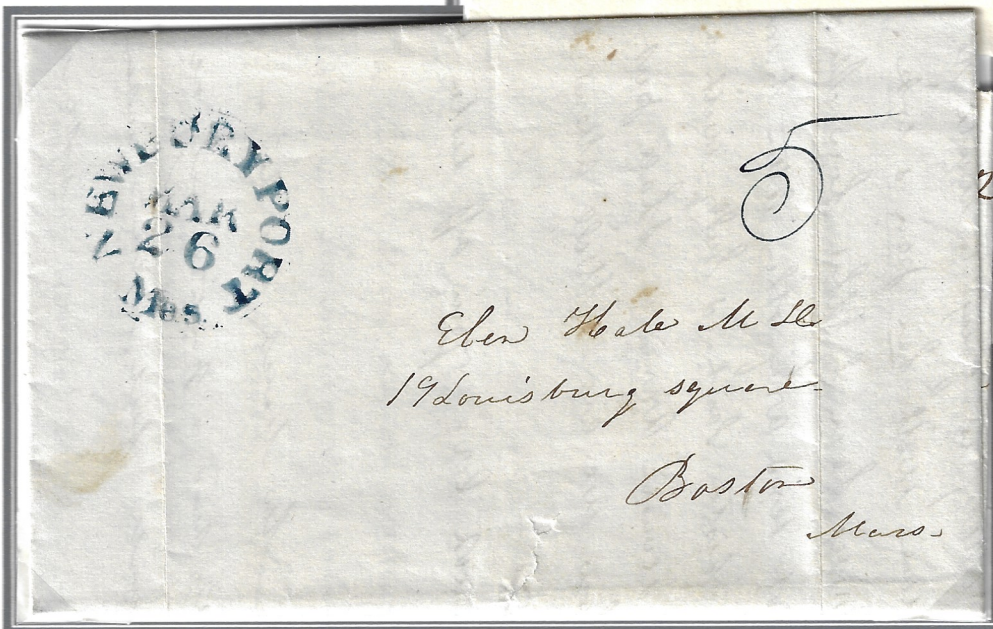 NEWBURYPORT
MAR
26
Mas.
5
Eben Hale M D
19 Louisburg square
Boston
Mass.